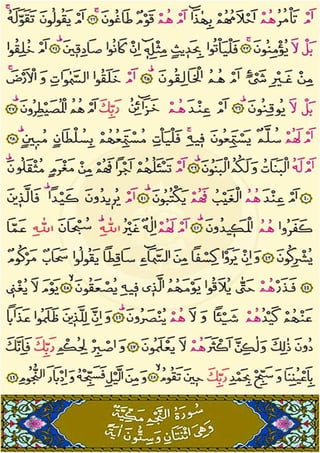 اَمْ تَأْمُرُهُمْ اَحْلَامُهُمْ بِهٰذَٓا اَمْ هُمْ قَوْمٌ طَاغُونَۚ ﴿٣٢﴾ اَمْ يَقُولُونَ تَقَوَّلَهُۚ
بَلْ لَا يُؤْمِنُونَۚ ﴿٣٣﴾ فَلْيَأْتُوا بِحَدِيثٍ مِثْلِهِٓ اِنْ كَانُوا صَادِقِينَۜ ﴿٣٤﴾ اَمْ خُلِقُوا
مِنْ غَيْرِ شَيْءٍ اَمْ هُمُ الْخَالِقُونَۜ ﴿٣٥﴾ اَمْ خَلَقُوا السَّمٰوَاتِ وَالْاَرْضَۚ
بَلْ لَا يُوقِنُونَۜ ﴿٣٦﴾ اَمْ عِنْدَهُمْ خَزَٓائِنُ رَبِّكَ اَمْ هُمُ الْمُصَۣيْطِرُونَۜ ﴿٣٧﴾
اَمْ لَهُمْ سُلَّمٌ يَسْتَمِعُونَ فِيهِۚ فَلْيَأْتِ مُسْتَمِعُهُمْ بِسُلْطَانٍ مُبِينٍۜ ﴿٣٨﴾
اَمْ لَهُ الْبَنَاتُ وَلَكُمُ الْبَنُونَۜ ﴿٣٩﴾ اَمْ تَسْـَٔلُهُمْ اَجْرًا فَهُمْ مِنْ مَغْرَمٍ مُثْقَلُونَۜ
﴿٤٠﴾ اَمْ عِنْدَهُمُ الْغَيْبُ فَهُمْ يَكْتُبُونَۜ ﴿٤١﴾ اَمْ يُرِيدُونَ كَيْدًاۜ فَالَّذِينَ
كَفَرُوا هُمُ الْمَكِيدُونَۜ ﴿٤٢﴾ اَمْ لَهُمْ اِلٰهٌ غَيْرُ اللّٰهِۜ سُبْحَانَ اللّٰهِ عَمَّا
يُشْرِكُونَ ﴿٤٣﴾ وَاِنْ يَرَوْا كِسْفًا مِنَ السَّمَٓاءِ سَاقِطًا يَقُولُوا سَحَابٌ مَرْكُومٌ
﴿٤٤﴾ فَذَرْهُمْ حَتّٰى يُلَاقُوا يَوْمَهُمُ الَّذِي فِيهِ يُصْعَقُونَۙ ﴿٤٥﴾ يَوْمَ لَا يُغْنِي
عَنْهُمْ كَيْدُهُمْ شَيْـًٔا وَلَا هُمْ يُنْصَرُونَۜ ﴿٤٦﴾ وَاِنَّ لِلَّذِينَ ظَلَمُوا عَذَابًا
دُونَ ذٰلِكَ وَلٰكِنَّ اَكْثَرَهُمْ لَا يَعْلَمُونَ ﴿٤٧﴾ وَاصْبِرْ لِحُكْمِ رَبِّكَ فَاِنَّكَ
بِاَعْيُنِنَا وَسَبِّحْ بِحَمْدِ رَبِّكَ حِينَ تَقُومُۙ ﴿٤٨﴾ وَمِنَ الَّيْلِ فَسَبِّحْهُ وَاِدْبَارَ النُّجُومِ ﴿٤٩﴾
سُورَةُ النَّجْمِ مَكِّيَّةٌ
وَهِيَ اثْنَتَانِ وَسِتُّونَ اٰيَةً